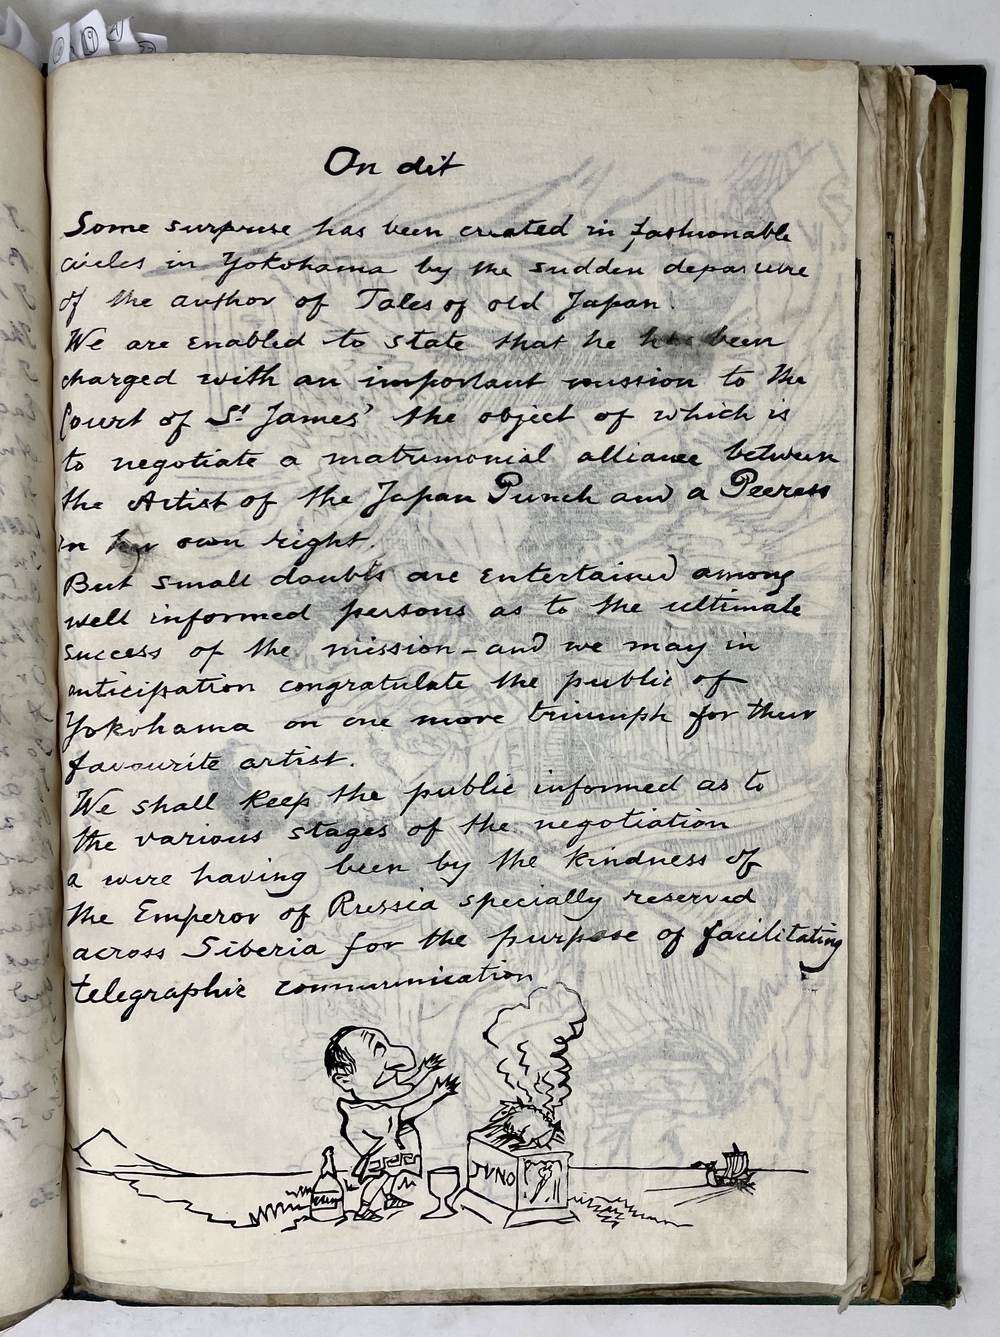 On dit
Some surprise has been created in fashionable
circles in Yokohama by the sudden departure
of the author of Tales of old Japan.
We are enabled to state that he has been
charged with an important mission to the
Court of St James' the object of which is
to negotiate a matrimonial alliance between
the Artist of the Japan Punch and a Peeress
in her own right.
But small doubts are entertained among
well informed persons as to the ultimate
success of the mission - and we may in
anticipation congratulate the public of
Yokohama on one more triumph for their
favourite artist.
We shall keep the public informed as to
the various stages of the negotiation
a wire having been by the kindness of
the Emperor of Russia specially reserved
across Siberia for the purpose of facilitating
telegraphic communication
JUNO